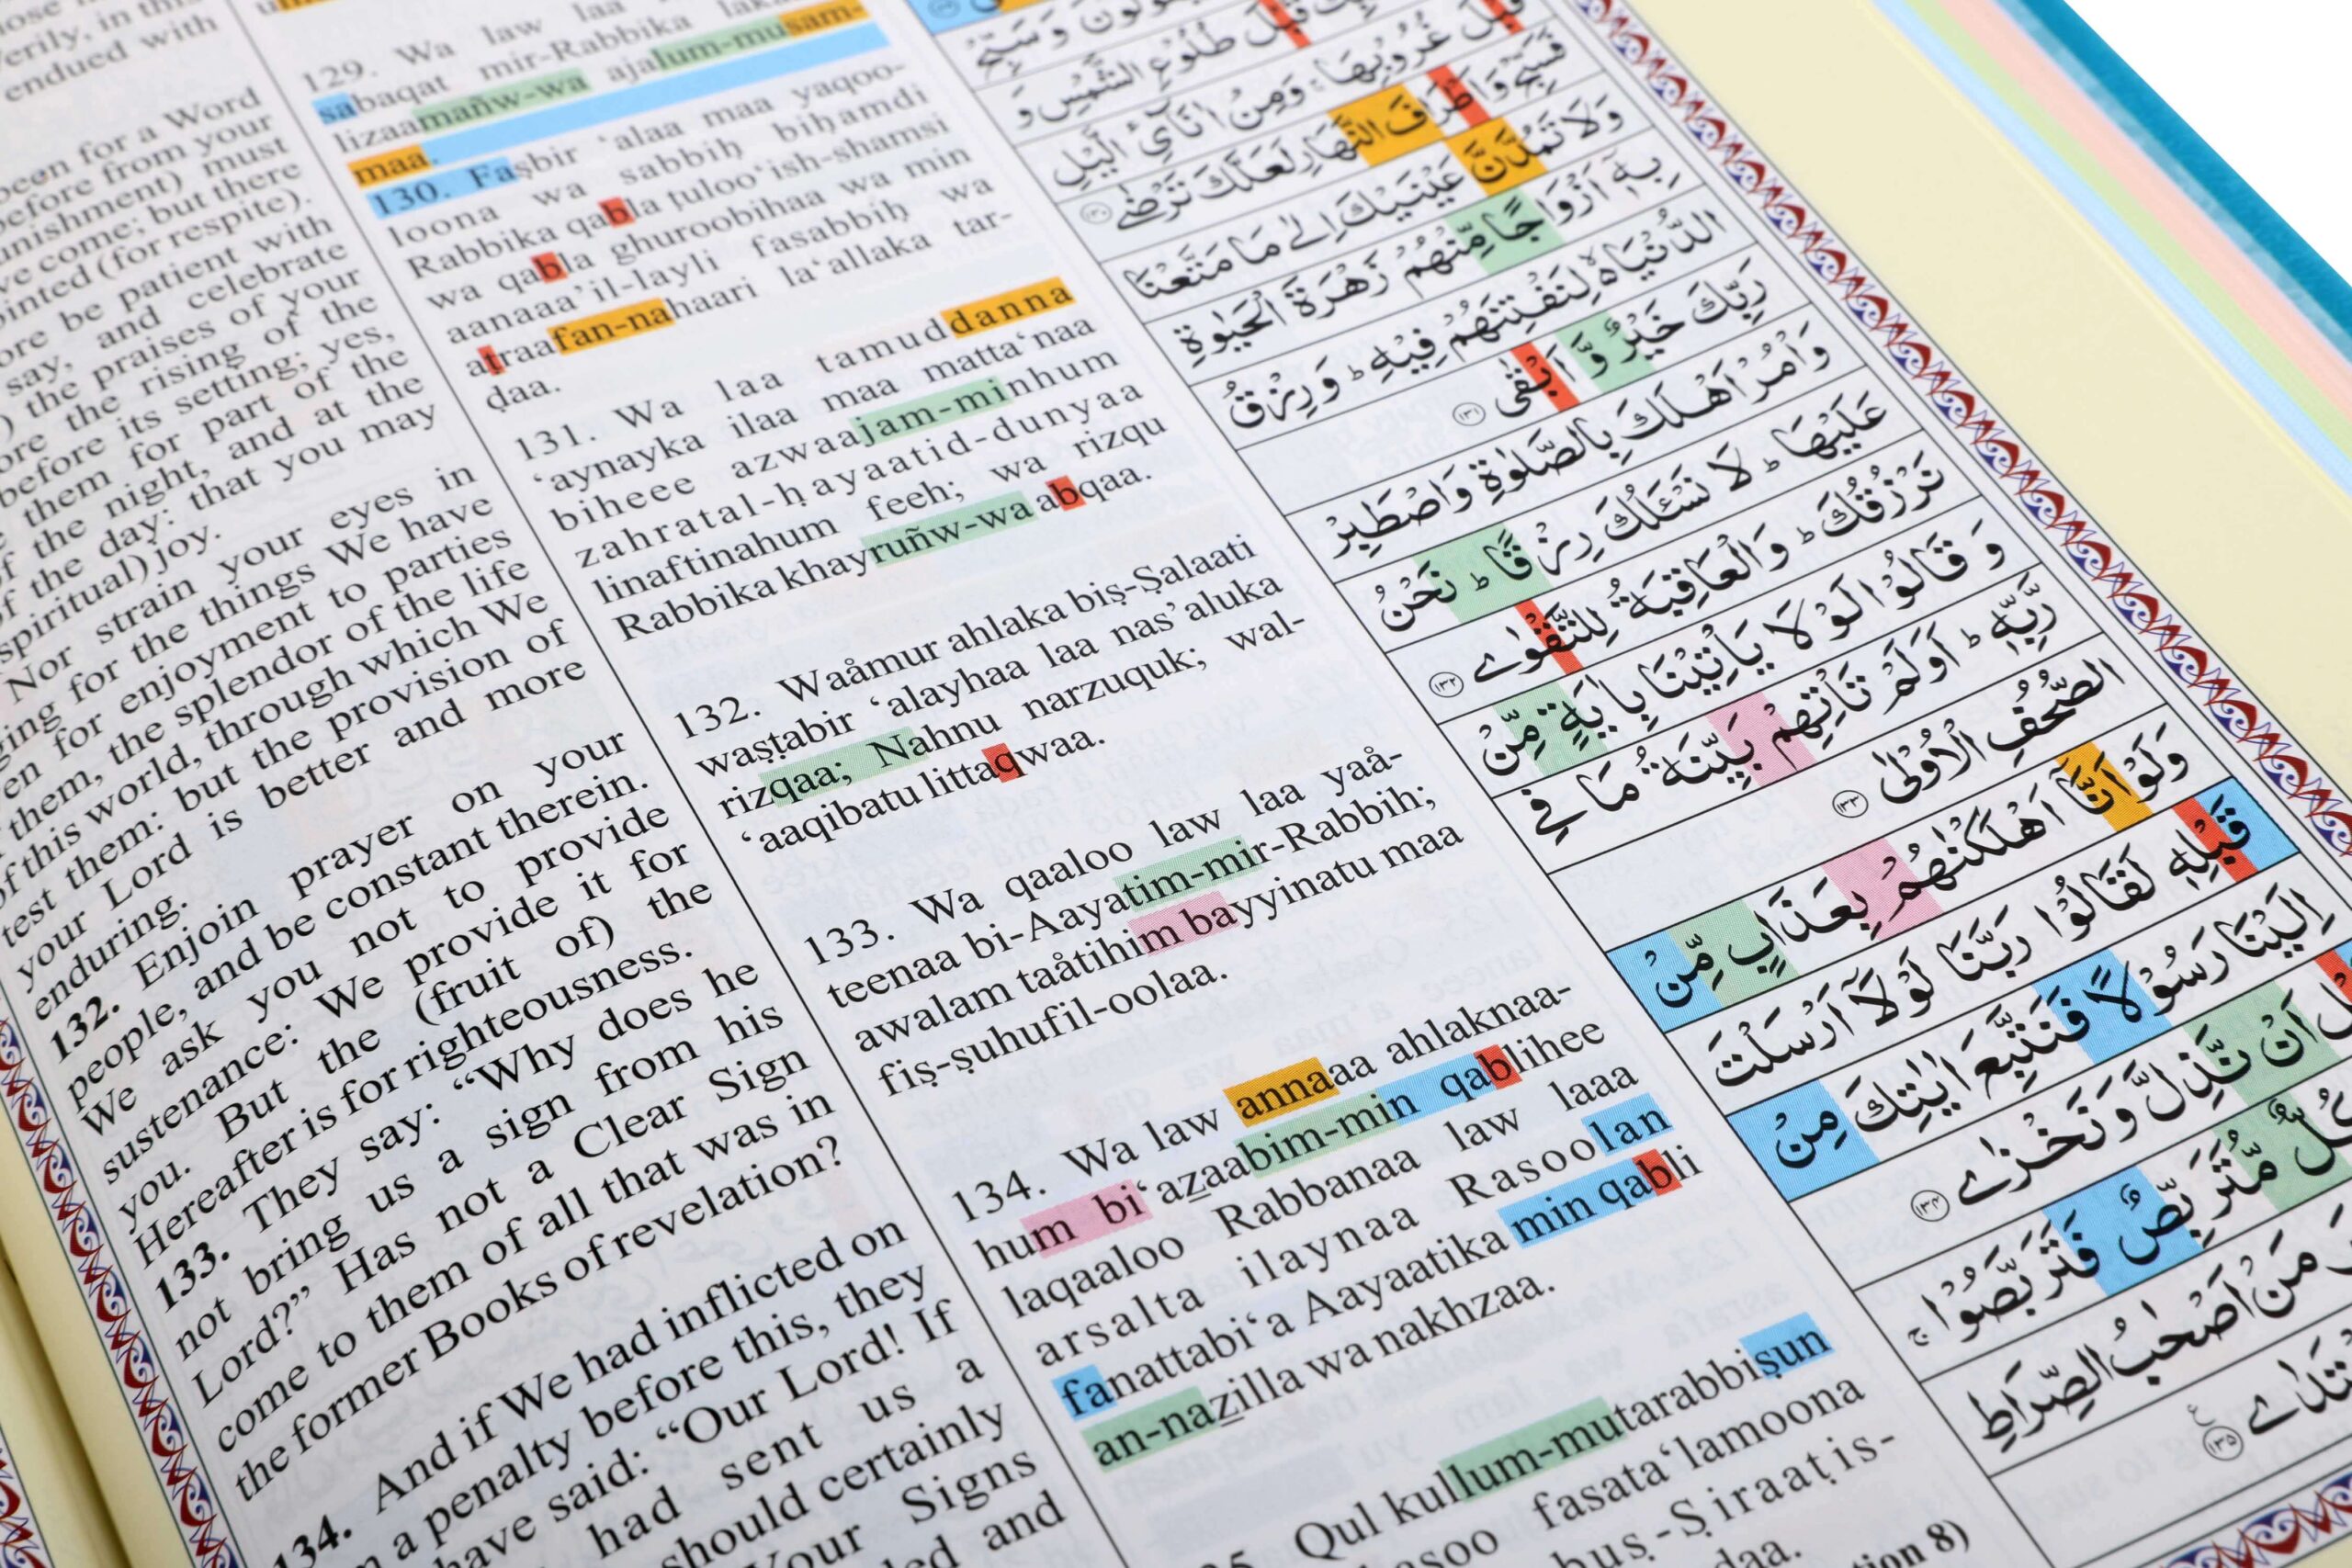 erily, in this
endued with
been for a Word
before from your
punishment) must
ve come; but there
ointed (for respite).
ore be patient with
say, and celebrate
) the praises of your
ore the rising of the
before its setting; yes,
them for part of the
of the night, and at the
of the day: that you may
spiritual) joy.
Nor strain your eyes in
ging for the things We have
en for enjoyment to parties
them, the splendor of the life
of this world, through which We
test them: but the provision of
your Lord is better and more
enduring.
132. Enjoin prayer on your
people, and be constant therein.
We ask you not to provide
sustenance: We provide it for
you. But the (fruit of) the
Hereafter is for righteousness.
133. They say: “Why does he
not bring us a sign from his
Lord?” Has not a Clear Sign
come to them of all that was in
the former Books of revelation?
134. And if We had inflicted on
a penalty before this, they
have said: “Our Lord! If
had sent us a
should certainly
Your Signs
ed and
129. Wa law laa
sabaqat mir-Rabbika laka
lizaamañw-wa ajalum-musam-
maa.
130. Faṣbir ‘alaa maa yaqoo-
loona wa sabbiḥ biḥamdi
Rabbika qabla ṭuloo‘ish-shamsi
wa qabla ghuroobihaa wa min
aanaaa’il-layli fasabbiḥ wa
aṭraafan-nahaari la‘allaka tar-
ḍaa.
131. Wa laa tamuddanna
‘aynayka ilaa maa matta‘naa
biheee azwaajam-minhum
zahratal-ḥayaatid-dunyaa
linaftinahum feeh; wa rizqu
Rabbika khayruñw-wa abqaa.
132. Waåmur ahlaka biṣ-Ṣalaati
waṣṭabir ‘alayhaa laa nas’aluka
rizqaa; Nahnu narzuquk; wal-
‘aaqibatu littaqwaa.
133. Wa qaaloo law laa yaå-
teenaa bi-Aayatim-mir-Rabbih;
awalam taåtihim bayyinatu maa
fiṣ-ṣuhufil-oolaa.
134. Wa law annaaa ahlaknaa-
hum bi‘azaabim-min qablihee
laqaaloo Rabbanaa law laaa
arsalta ilaynaa Rasoolan
fanattabi‘a Aayaatika min qabli
an-nazilla wa nakhzaa.
Qul kullum-mutarabbiṣun
fasata‘lamoona
-Ṣiraaṭis-
daa.
tion 8)
قَبْلَ طُلُوْعِ الشَّمْسِ وَ
قَبْلَ غُرُوْبِهَا ۚ وَمِنْ اٰنَآئِ الَّيْلِ
فَسَبِّحْ وَاَطْرَافَ النَّهَارِ لَعَلَّكَ تَرْضٰى ۝۱۳۰
وَلَا تَمُدَّنَّ عَيْنَيْكَ اِلٰى مَا مَتَّعْنَا
بِهٖٓ اَزْوَاجًا مِّنْهُمْ زَهْرَةَ الْحَيٰوةِ
الدُّنْيَا ۙ لِنَفْتِنَهُمْ فِيْهِ ؕ وَرِزْقُ
رَبِّكَ خَيْرٌ وَّاَبْقٰى ۝۱۳۱
وَاْمُرْ اَهْلَكَ بِالصَّلٰوةِ وَاصْطَبِرْ
عَلَيْهَا ؕ لَا نَسْـَٔلُكَ رِزْقًا ؕ نَحْنُ
نَرْزُقُكَ ؕ وَالْعَاقِبَةُ لِلتَّقْوٰى ۝۱۳۲
وَقَالُوْا لَوْلَا يَاْتِيْنَا بِاٰيَةٍ مِّنْ
رَّبِّهٖ ؕ اَوَلَمْ تَاْتِهِمْ بَيِّنَةُ مَا فِى
الصُّحُفِ الْاُوْلٰى ۝۱۳۳
وَلَوْ اَنَّآ اَهْلَكْنٰهُمْ بِعَذَابٍ مِّنْ
قَبْلِهٖ لَقَالُوْا رَبَّنَا لَوْلَآ اَرْسَلْتَ
اِلَيْنَا رَسُوْلًا فَنَتَّبِعَ اٰيٰتِكَ مِنْ
اَنْ نَّذِلَّ وَنَخْزٰى ۝۱۳۴
كُلٌّ مُّتَرَبِّصٌ فَتَرَبَّصُوْا ۚ
مَنْ اَصْحٰبُ الصِّرَاطِ
۝۱۳۵